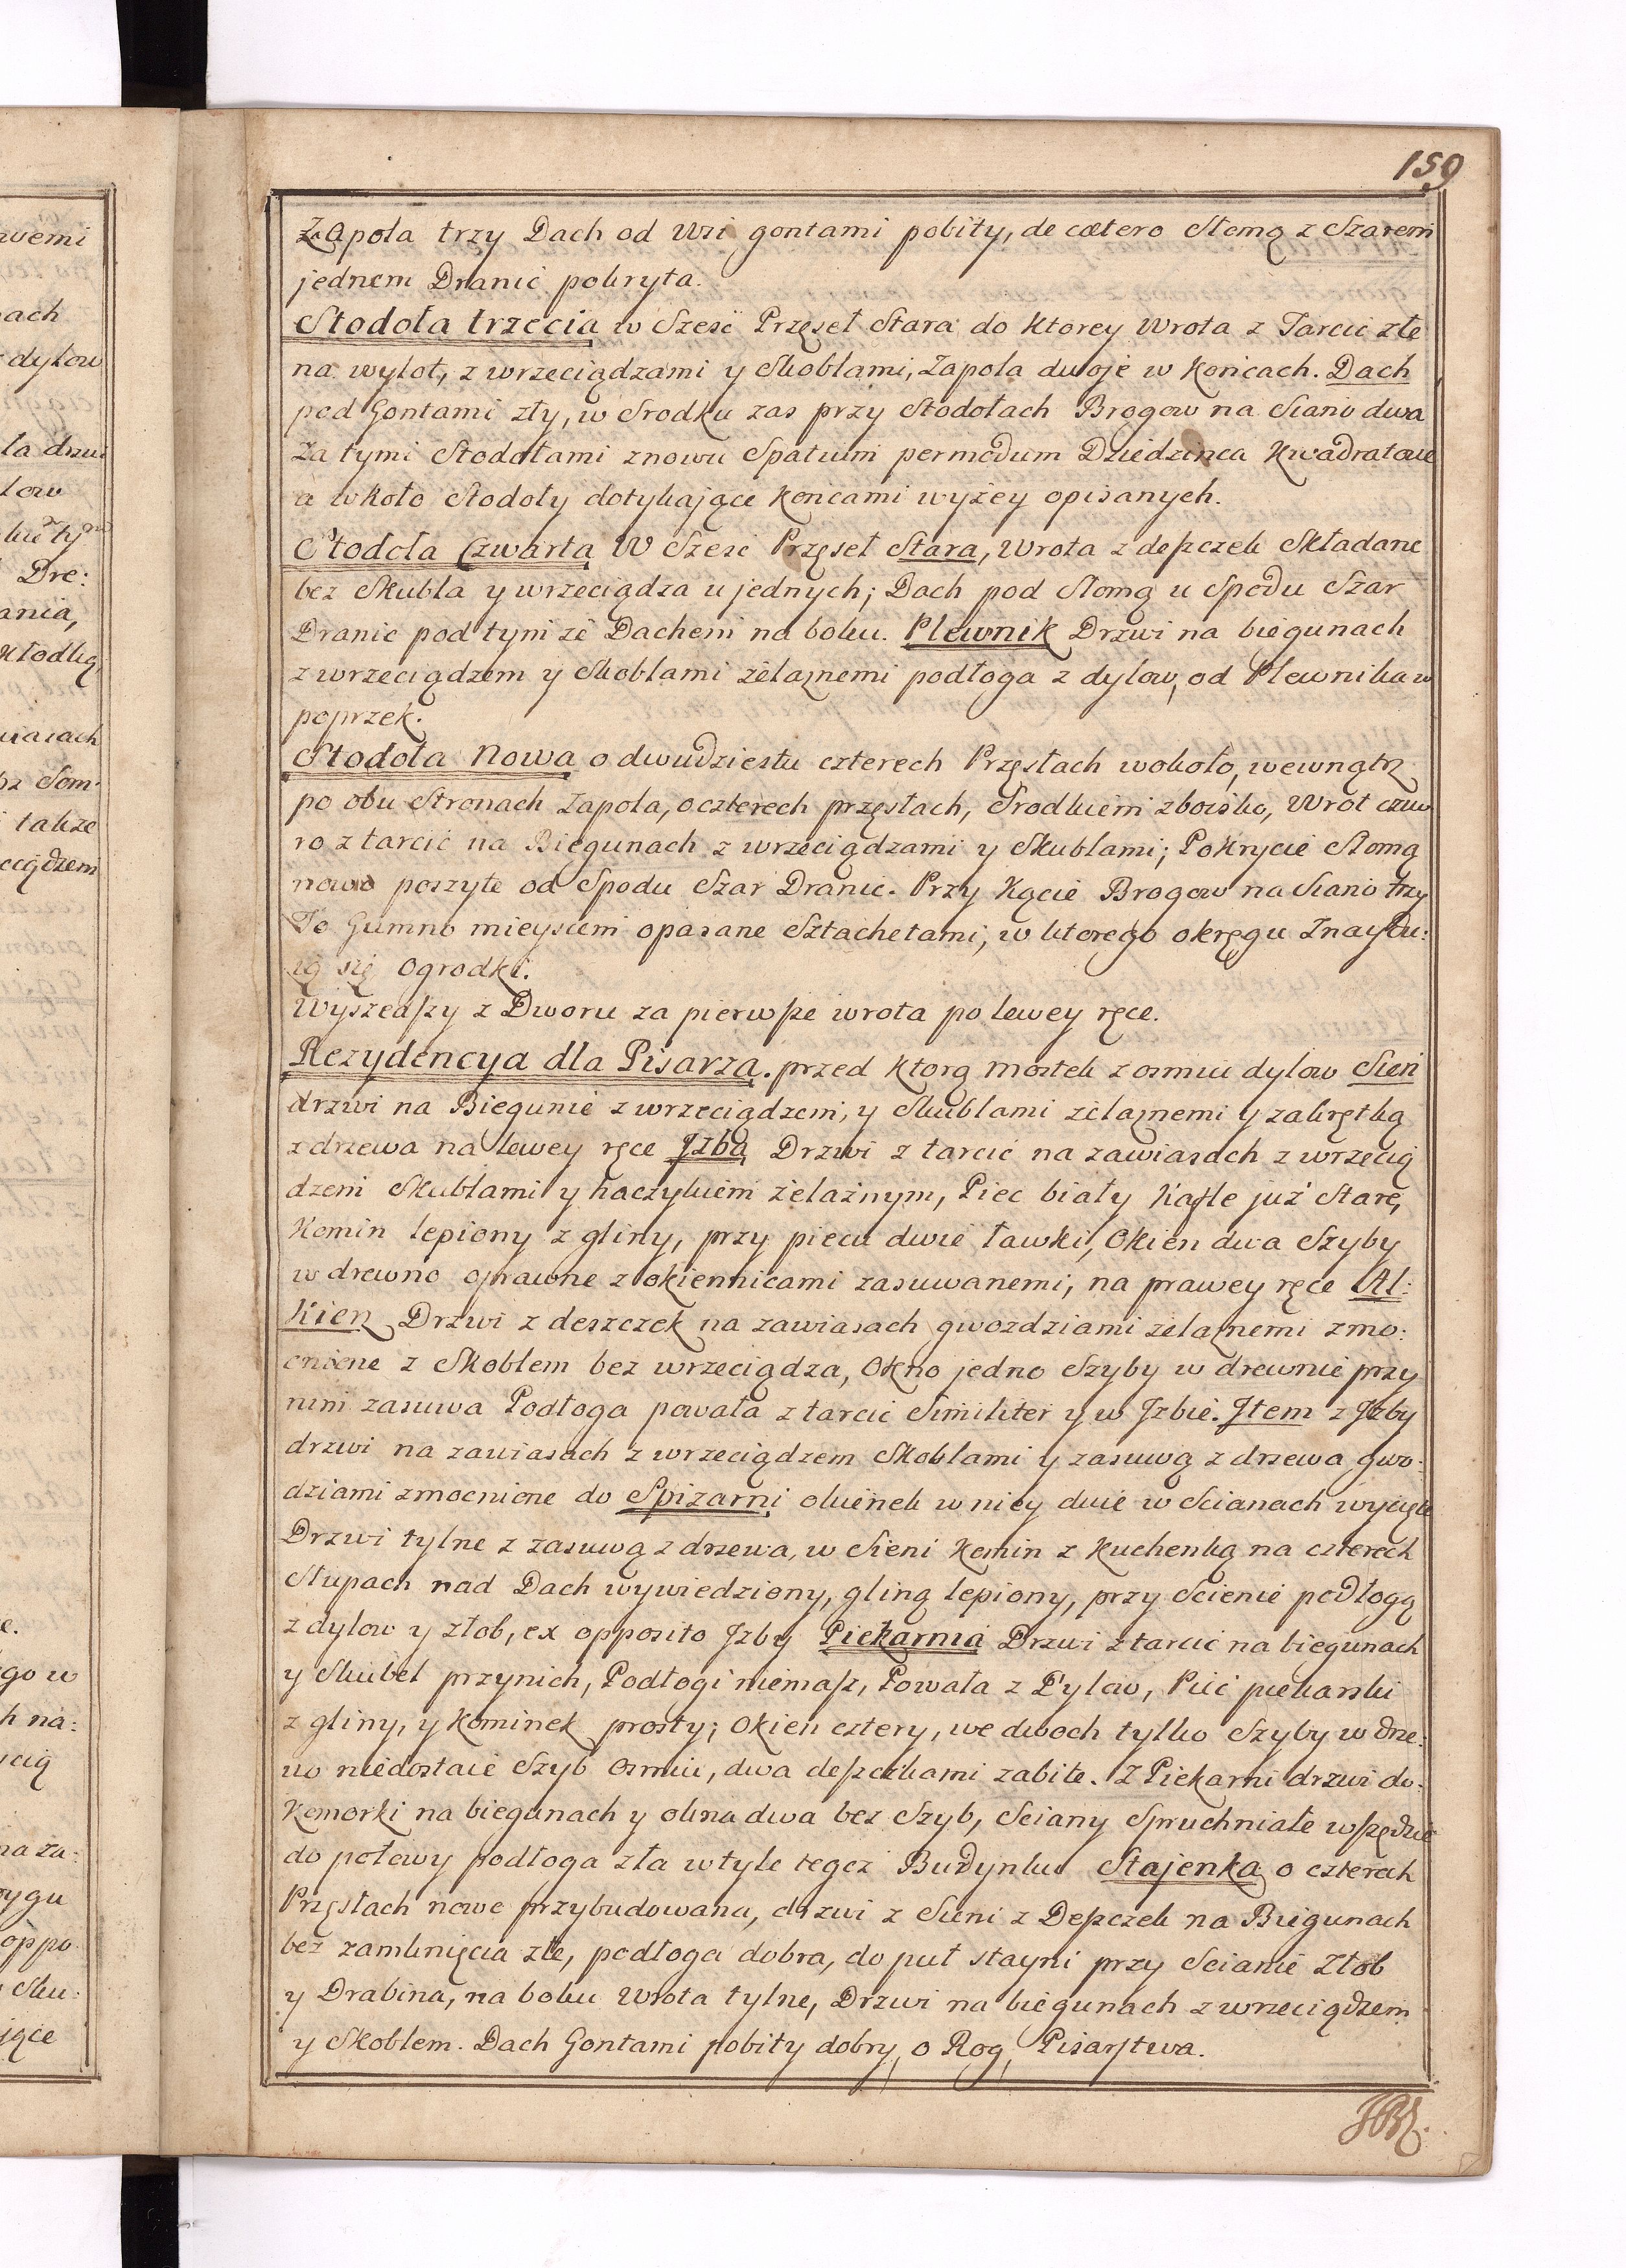 159
Zapola trzy Dach od Wsi gontami pobity, de cætero Słomą z Szarem
jednem Dranic pokryta.
Stodoła trzecia w Szesć Przęseł Stara do Ktorey Wrota z Tarcic złe
na wylot, z wrzeciądzami y Skoblami, Zapola dwoje w Koncach. Dach
pod Gontami zły, w Srodku zas przy Stodołach Brogow na Siano dwa
Za tymi Stodołami znowu Spatium per modum Dziedzinca Kwadratowe
a wkoło Stodoły dotykające Koncami wyżey opisanych.
Stodoła Czwarta W Szesc Przęseł Stara, Wrota z deszczek Składane
bez Skubla y wrzeciądza u jednych; Dach pod Słomą u Spodu Szar
Dranic pod tym że Dachem na boku. Plewnik Drzwi na biegunach
z wrzeciądzem y Skoblami żelaznemi podłoga z dylow, od Plewnika w
poprzek.
Stodoła Nowa o dwudziestu czterech Przęsłach wokoło, wewnątrz
po obu Stronach Zapola, o czterech przęsłach, Srodkiem zboisko, Wrot czwo
ro z tarcic na Biegunach z wrzeciądzami y Skublami; Pokrycie Słomą
nowo poszyte od Spodu Szar Dranic. Przy Kącie Brogow na Siano trzy
To Gumno mieyscem opasane Sztachetami, w ktorego okręgu Znaydu:
ią się Ogrodki.
Wyszedszy z Dworu za pierwsze wrota po lewey ręce.
Rezydencya dla Pisarza. przed Ktorą Mostek z osmiu dylow Sień
drzwi na Biegunie z wrzeciądzem, y Skublami żelaznemi y zakrętką
z drzewa na lewey ręce Jzba Drzwi z tarcic na zawiasach z wrzecią
dzem Skublami y haczykiem żelaznym, Piec biały Kafle już Stare,
Komin lepiony z gliny, przy piecu dwie ławki, Okien dwa Szyby
w drewno oprawne z okiennicami zasuwanemi, na prawey ręce Al:
Kierz Drzwi z deszczek na zawiasach gwozdziami żelaznemi zmo:
cnione z Skoblem bez wrzeciądza, Okno jedno Szyby w drewnie przy
nim zasuwa Podłoga powała z tarcic Similiter y w Jzbie. Jtem z Jzby
drzwi na zawiasach z wrzeciądzem Skoblami y zasuwą z drzewa gwo:
dziami zmocnione do Spizarni okienek w niey dwie w Scianach wycięte
Drzwi tylne z zasuwą z drzewa, w Sieni Komin z Kuchenką na czterech
Słupach nad Dach wywiedziony, gliną lepiony, przy Scienie podłogą
z dylow y złob, ex opposito Jzby Piekarnia Drzwi z tarcic na biegunach
y Skubel przy nich, Podłogi niemasz, Powała z Dylow, Piec piekarski
z gliny, y Kominek prosty; Okien cztery, we dwoch tylko Szyby w drze:
wo niedostaie Szyb osmiu, dwa deszczkami zabite. Z Piekarni drzwi do:
Komorki na biegunach y okna dwa bez Szyb, Sciany Spruchniałe wszędzie
do połowy podłoga zła w tyle tegoż Budynku Stajenka o czterech
Przęsłach nowo przybudowana, drzwi z Sieni z Deszczek na Biegunach
bez zamknięcia złe, podłoga dobra, do puł stayni przy Scianie Złob
y Drabina, na boku Wrota tylne, Drzwi na biegunach z wrzeciądzem
y Skoblem. Dach Gontami pobity dobry, o Rog, Pisarstwa.